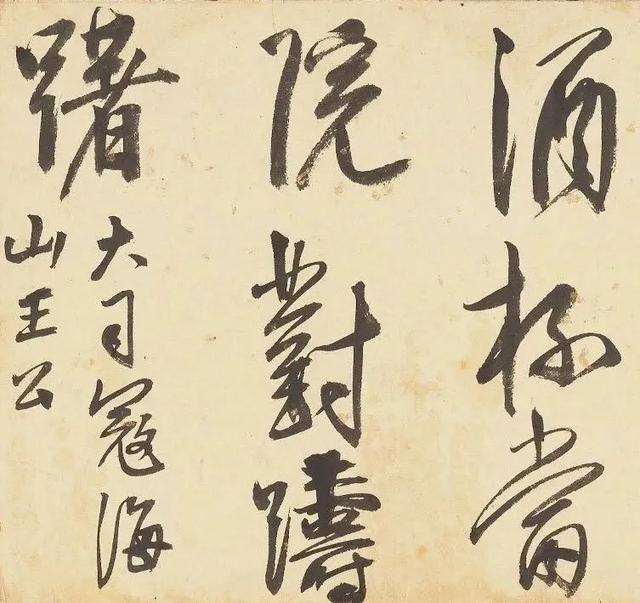 酒杯當
院對躊
躇
大司寇海
山王公